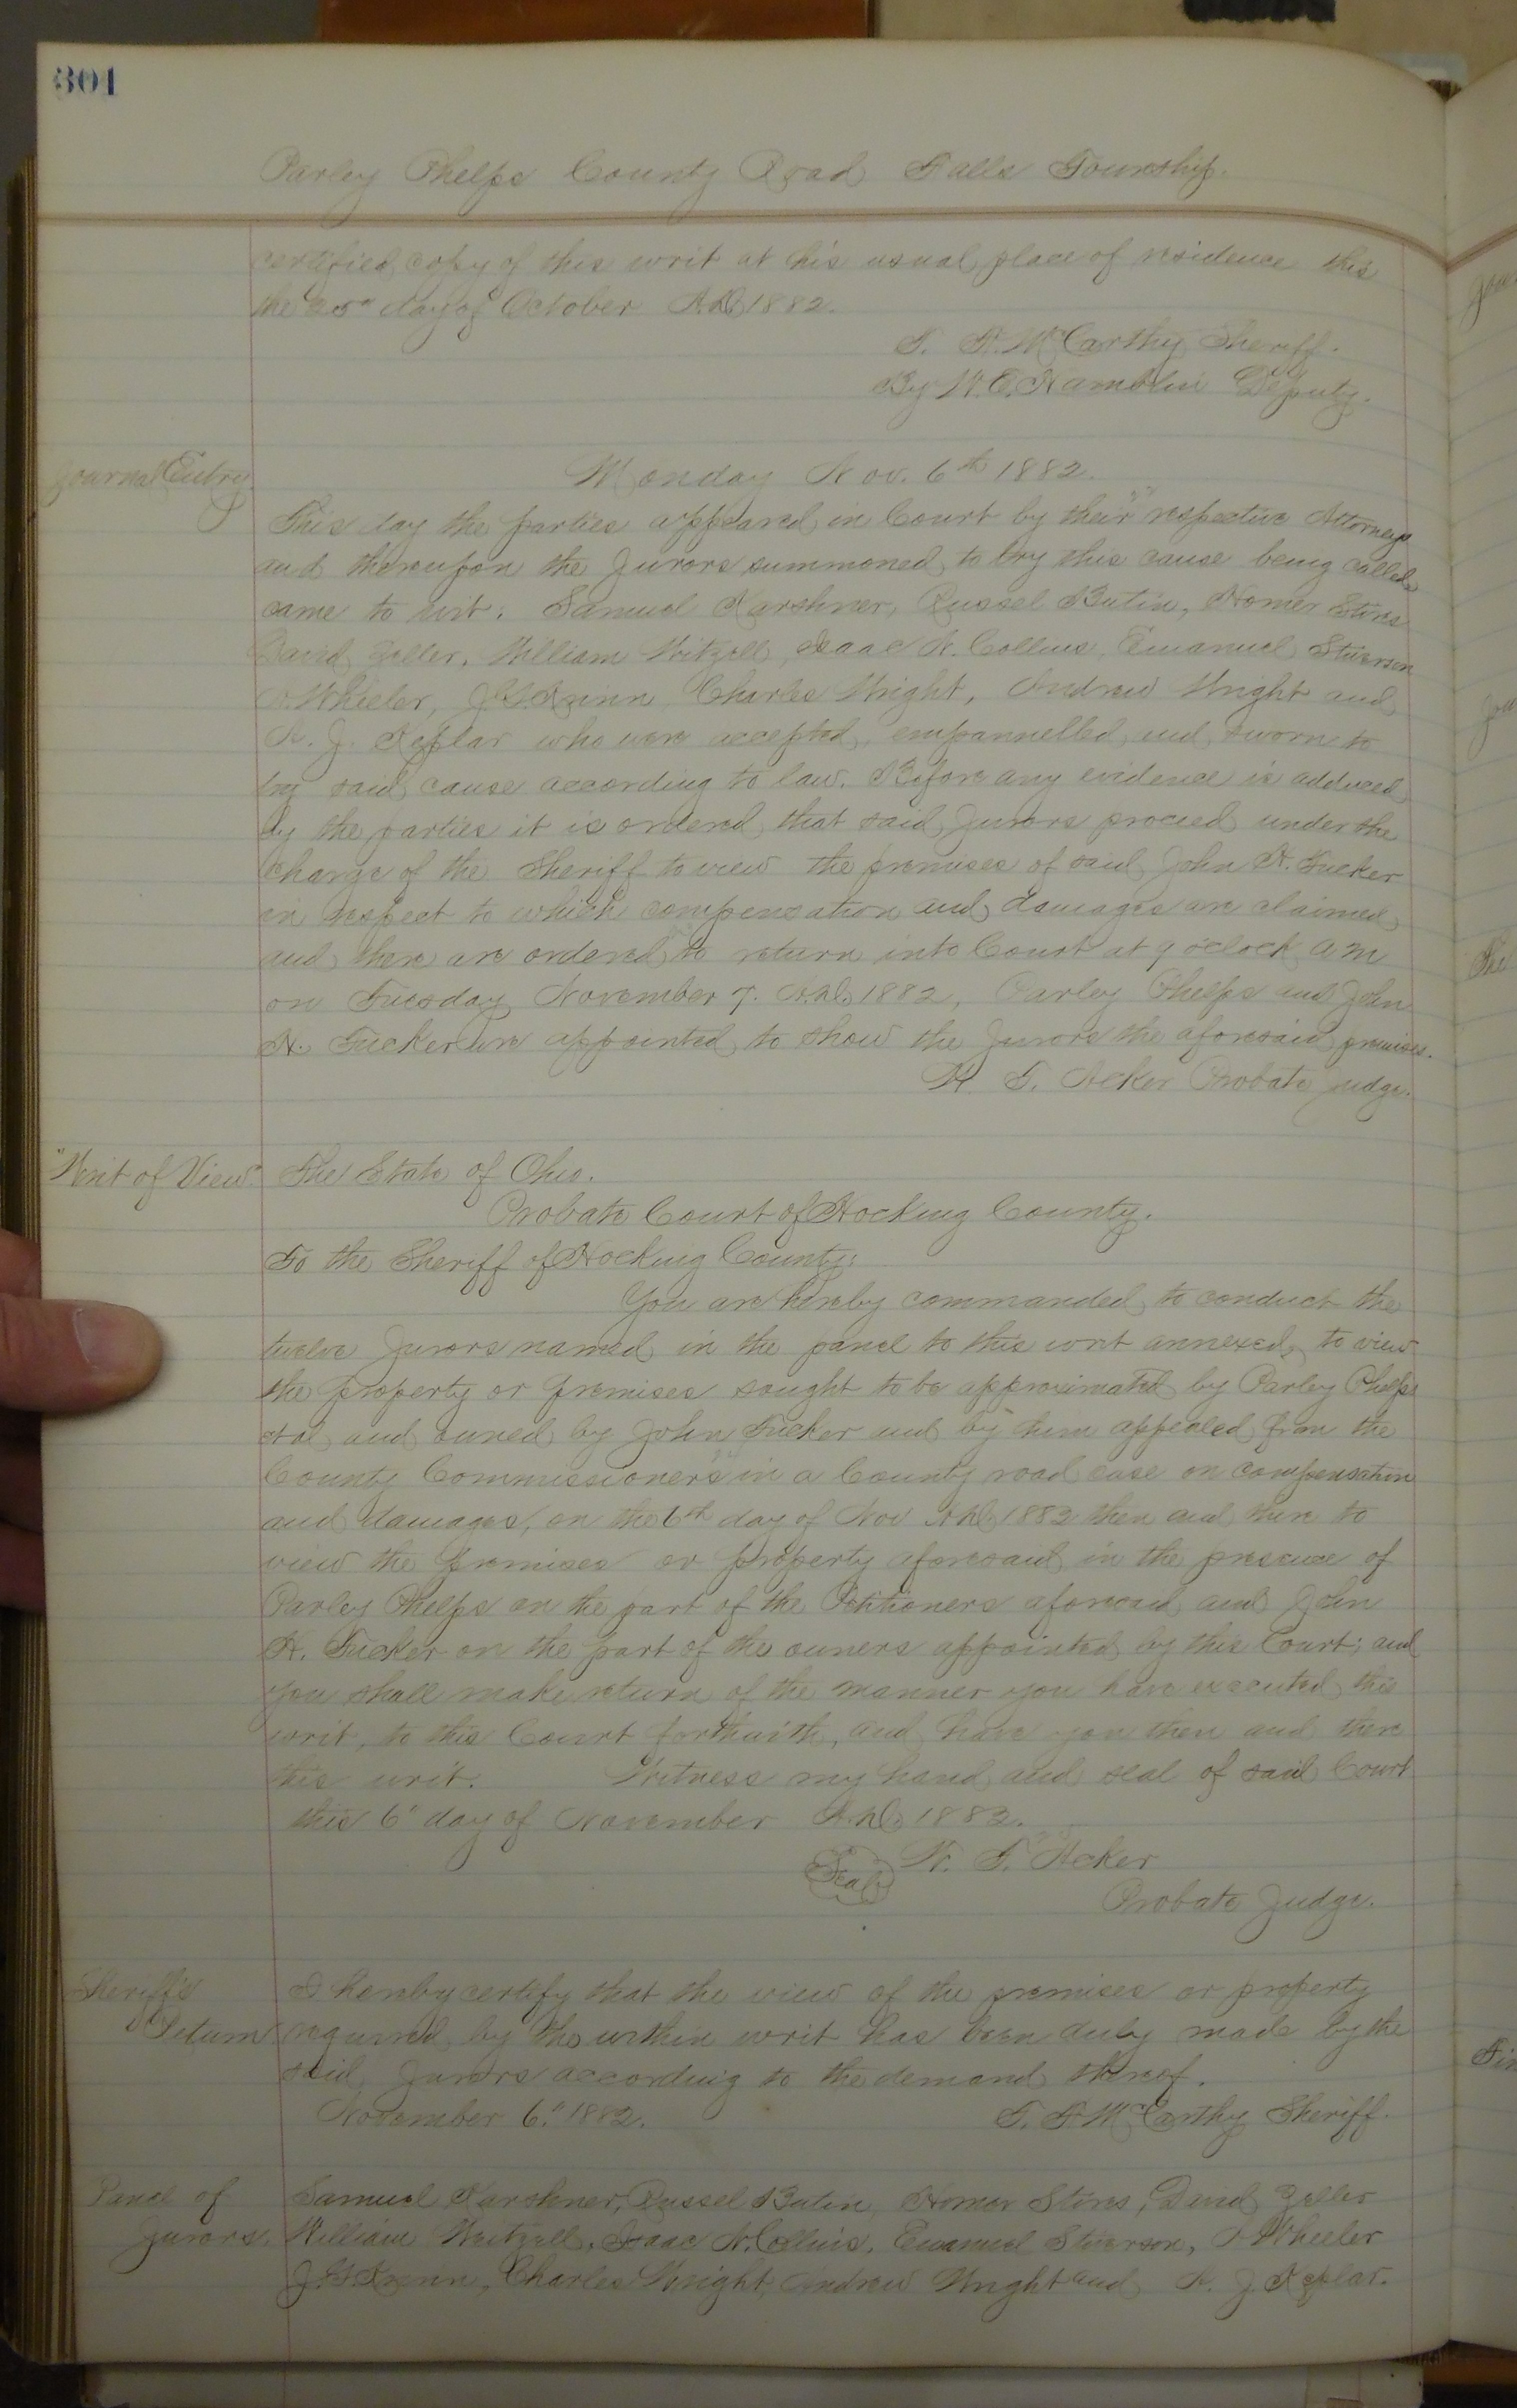 301
Parley Phelps County Road Falls Township.
certified copy of this writ at his usual place of residence this
the 25" day of October A.D. 1882.
T. F. McCarthy Sheriff.
By W. E. Hamblin Deputy.
Journal Entry
Monday Nov. 6th 1882.
This day the parties appeared in Court by their respective Attorneys
and thereupon the Jurors summoned to try this cause being called
came to wit: Samuel Karshner, Russel Butin, Homer Stivs
David Zeller, William Weitzell, Isaac N. Collins, Emanuel Stiverson
Wheeler, Charles Wright, Andrew Wright and
J. Keplar who were accepted, empannelled and sworn to
try said cause according to law. Before any evidence is adduced
by the parties it is ordered that said Jurors proceed under the
charge of the Sheriff to view the premises of said John H. Tucker
in respect to which compensation and damages are claimed
and there are ordered to return into Court at 9 o'clock A M
on Tuesday November 7. A.D. 1882, Parley Phelps and John
H. Tucker are appointed to show the Jurors the aforesaid premises.
W. T. Acker Probate Judge.
"Writ of View"
The State of Ohio.
Probate Court of Hocking County.
To the Sheriff of Hocking County:
You are hereby commanded to conduct the
twelve Jurors named in the panel to this writ annexed, to view
the property or premises sought to be approximated by Parley Phelps
et al and owned by John Tucker and by him appealed from the
County Commissioners in a County road case on compensation
and damages, on the 6th day of Nov A.D. 1882 then and there to
view the premises or property aforesaid in the presence of
Parley Phelps on the part of the Petitioners aforesaid and John
H. Tucker on the part of the owners appointed by this Court; and
you shall make return of the manner you have executed this
writ, to this Court forthwith, and have you then and there
this writ. Witness my hand and seal of said Court
this 6" day of November A.D. 1882.
Seal W. T. Acker
Probate Judge.
Sheriff's
Return
I hereby certify that the view of the premises or property
required by the within writ has been duly made by the
said Jurors according to the demand thereof.
November 6." 1882. T. F. McCarthy Sheriff.
Panel of
Jurors.
Samuel Karshner, Russel Butin, Homer Stivs, David Zeller
William Weitzell, Isaac N. Collins, Emanuel Stiverson, Wheeler
Charles Wright, Andrew Wright and J. Keplar.